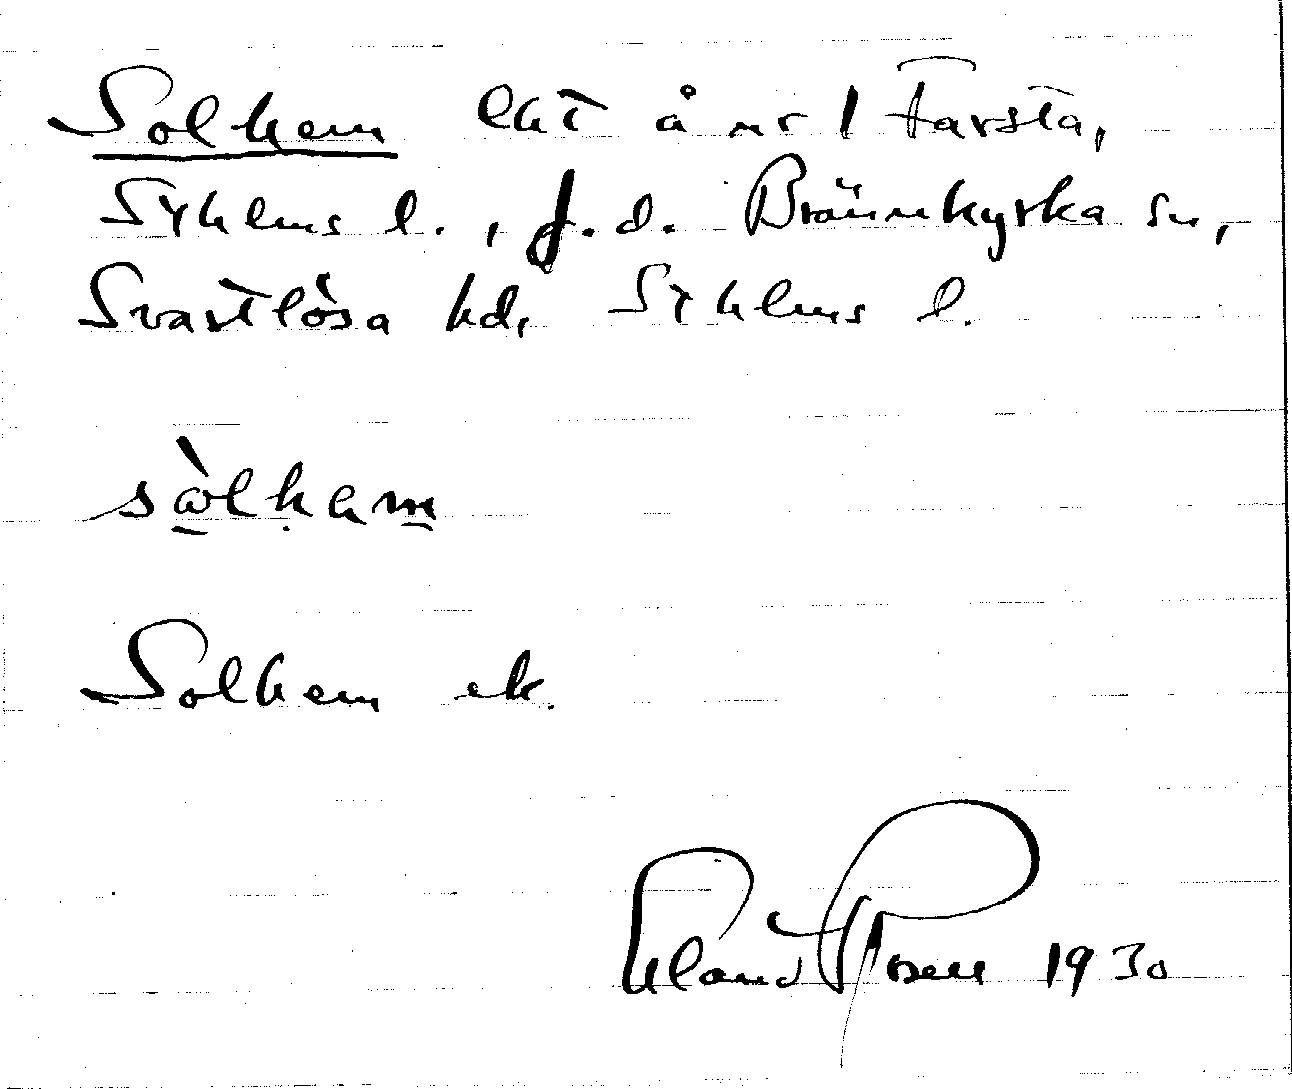 Solhem lht å nr 1 Farsta,
Sthlms l., f.d. Brännkyrka sn,
Svartlösa hd, Sthlms l.
sòlham
Solhem ek.
Eland Rosell 1930